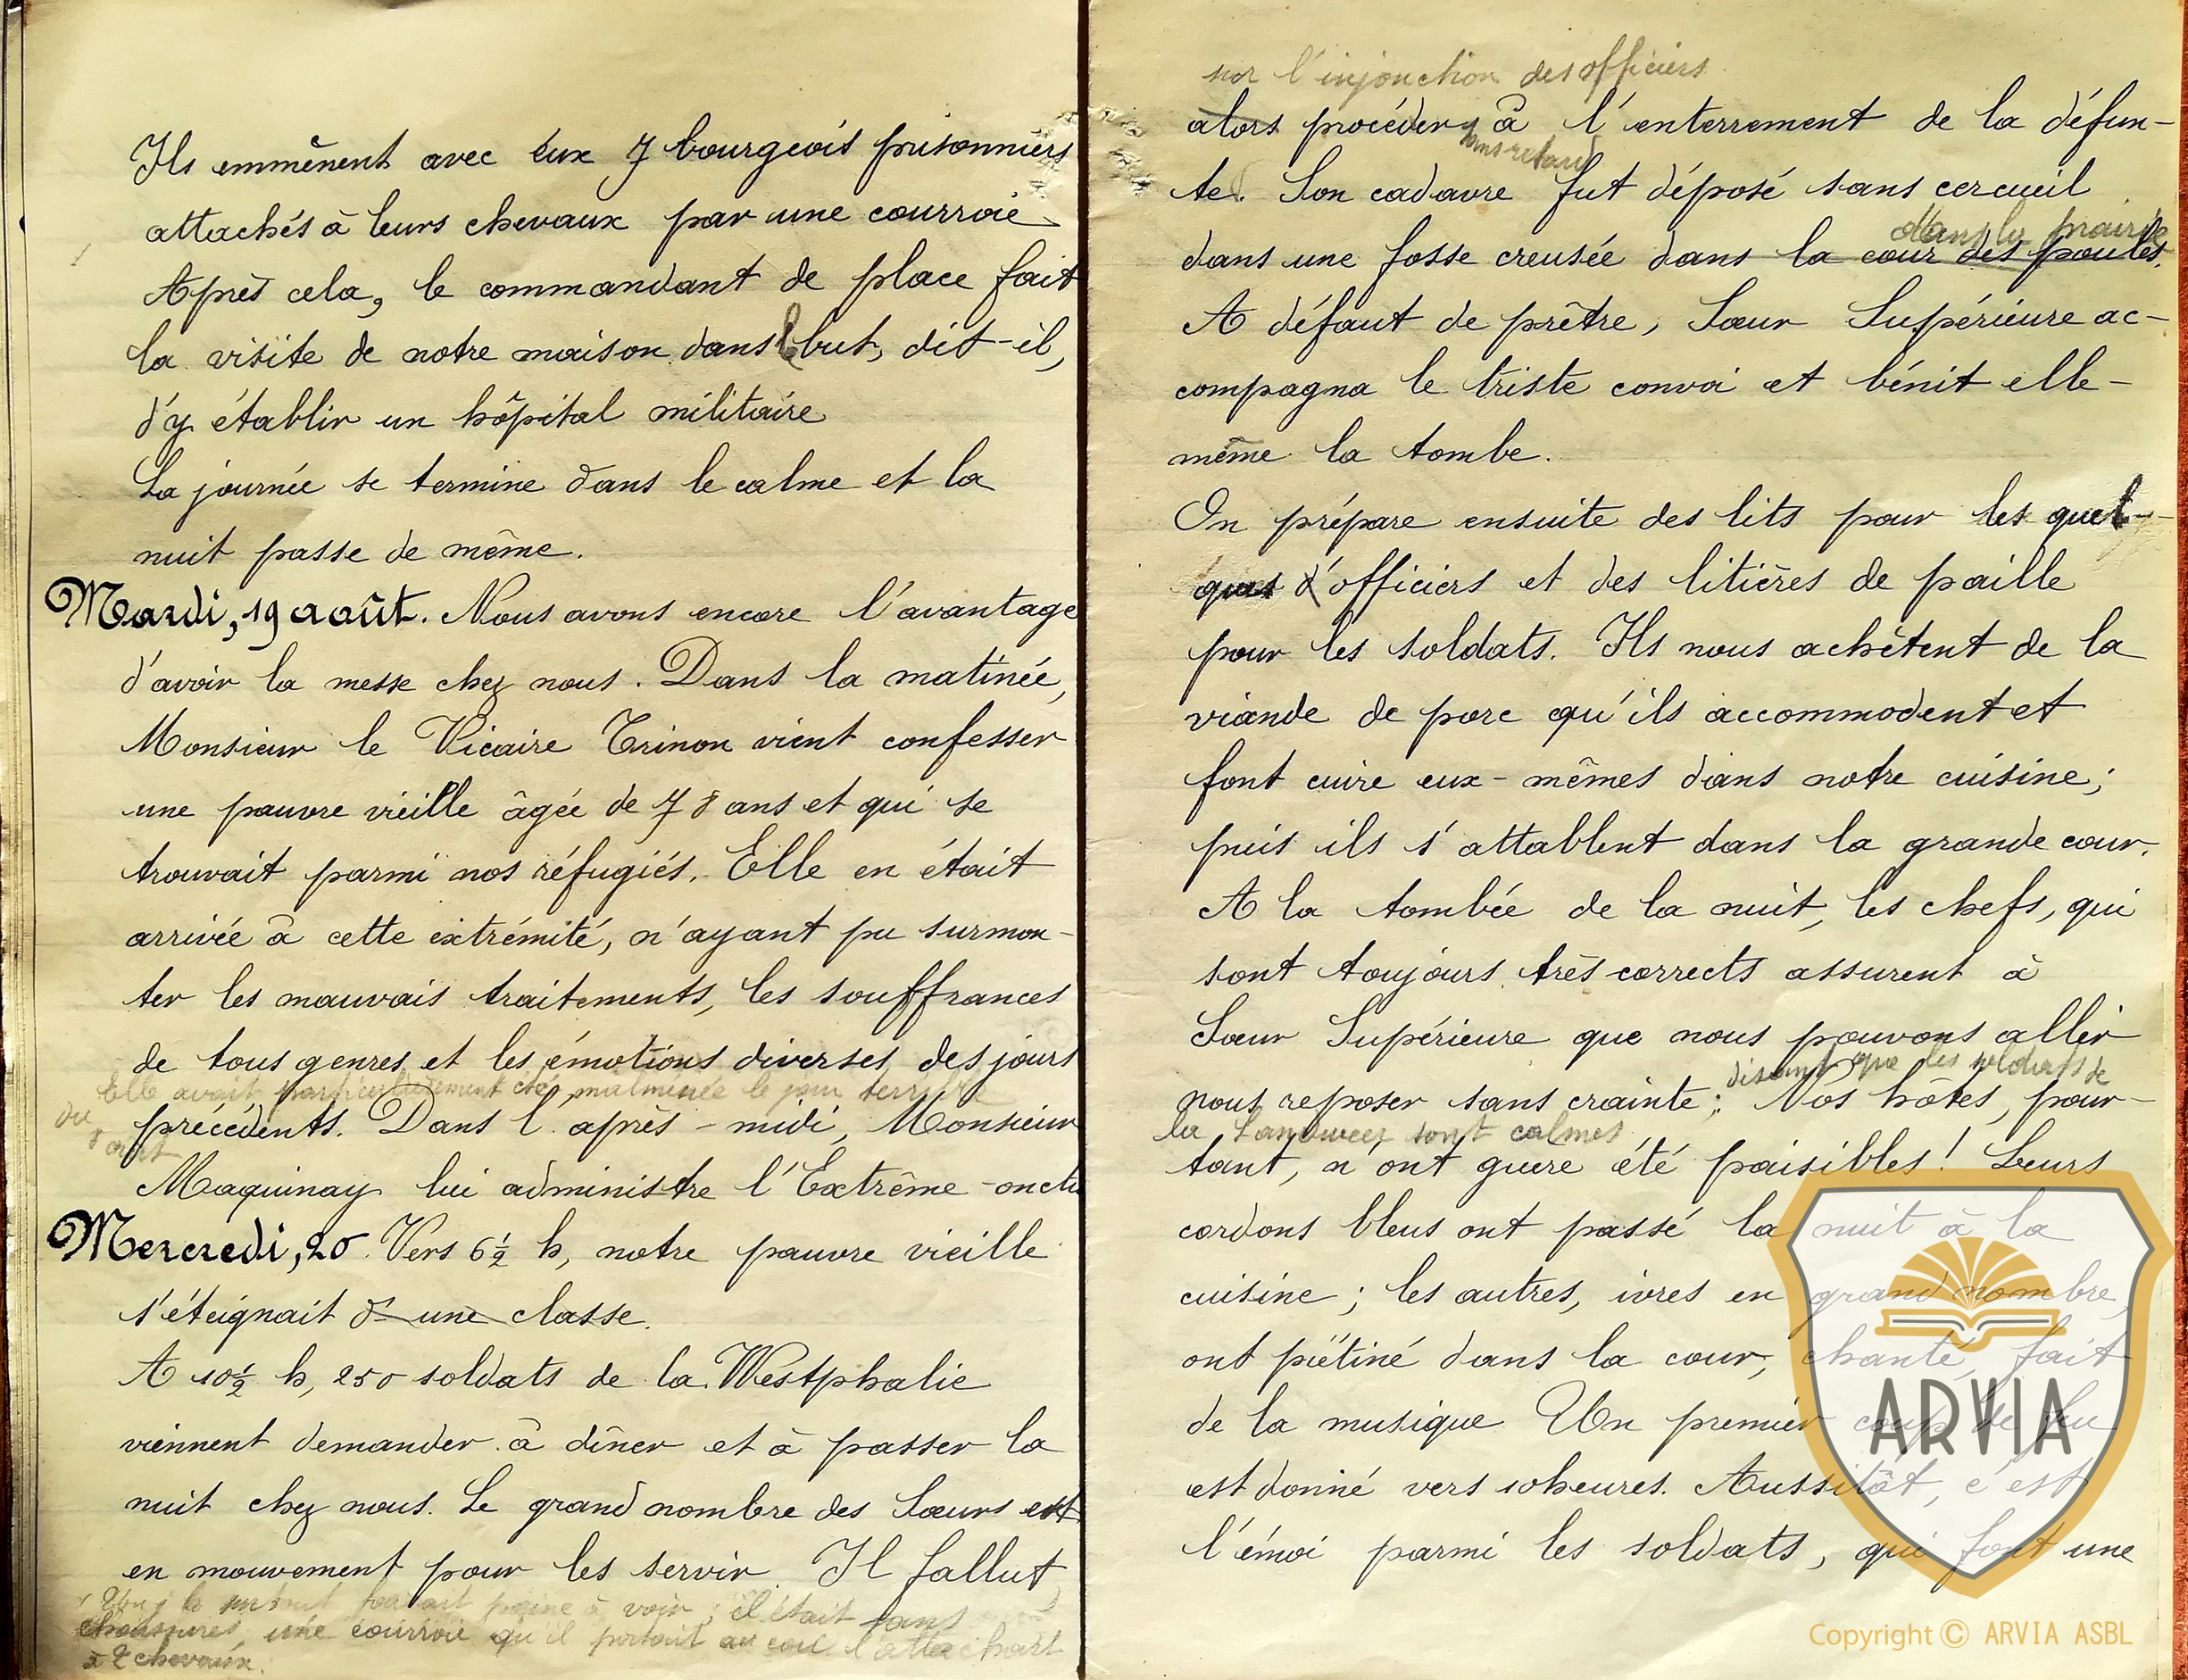 Ils emmênent avec eux 7 bourgeois prisonniers
attachés à leurs chevaux par une courroie
Après cela, le commandant de place fait
la visite de notre maison dans le but, dit-il,
d'y établir un hôpital militaire
La journée se termine dans le calme et la
nuit passe de même.
Mardi, 19 août. Nous avons encore l'avantage
d'avoir la messe chez nous. Dans la matinée,
Monsieur le Vicaire Trinon vient confesser
une pauvre vieille âgée de 78 ans et qui se
trouvait parmi nos réfugiés. Elle en était
arrivée à cette extrémité, n'ayant pu surmon-
ter les mauvais traitements, les souffrances
de tous genres et les émotions diverses des jours
Elle avait particulièrement été malmenée le jour terrible
du 8 août
précédents. Dans l'après-midi, Monsieur
Maquinay lui administre l'Extrême-onct
Mercredi, 20. Vers 6½ h, notre pauvre vieille
s'éteignait d'une classe.
A 10½ h, 250 soldats de la Westphalie
viennent demander à dîner et à passer la
nuit chez nous. Le grand nombre des Sœurs est
en mouvement pour les servir. Il fallut
faisait peine à voir ; il était sans
chaussures, une courroie qu'il portait au cou l'attachait
à 2 chevaux.
sur l'injonction des officiers
alors procéder à l'enterrement de la défun-
sans retard
te. Son cadavre fut déposé sans cercueil
dans la prairie
dans une fosse creusée dans la cour des poules.
A défaut de prêtre, Sœur Supérieure ac-
compagna le triste convoi et bénit elle-
même la tombe.
On prépare ensuite des lits pour les quel-
ques d'officiers et des litières de paille
pour les soldats. Ils nous achètent de la
viande de porc qu'ils accommodent et
font cuire eux-mêmes dans notre cuisine ;
puis ils s'attablent dans la grande cour.
A la tombée de la nuit, les chefs, qui
sont toujours très corrects assurent à
Sœur Supérieure que nous pouvons aller
disant que les soldats de
nous reposer sans crainte ; Nos hôtes, pour-
la Landwehr sont calmes
tant, n'ont guere été paisibles ! Leurs
cordons bleus ont passé la nuit à la
cuisine ; les autres, ivres en grand nombre,
ont piétiné dans la cour, chanté, fait
de la musique Un premier coup de feu
est donné vers 10 heures. Aussitôt, c'est
l'émoi parmi les soldats, qui font une
ARVIA
Copyright © ARVIA ASBL